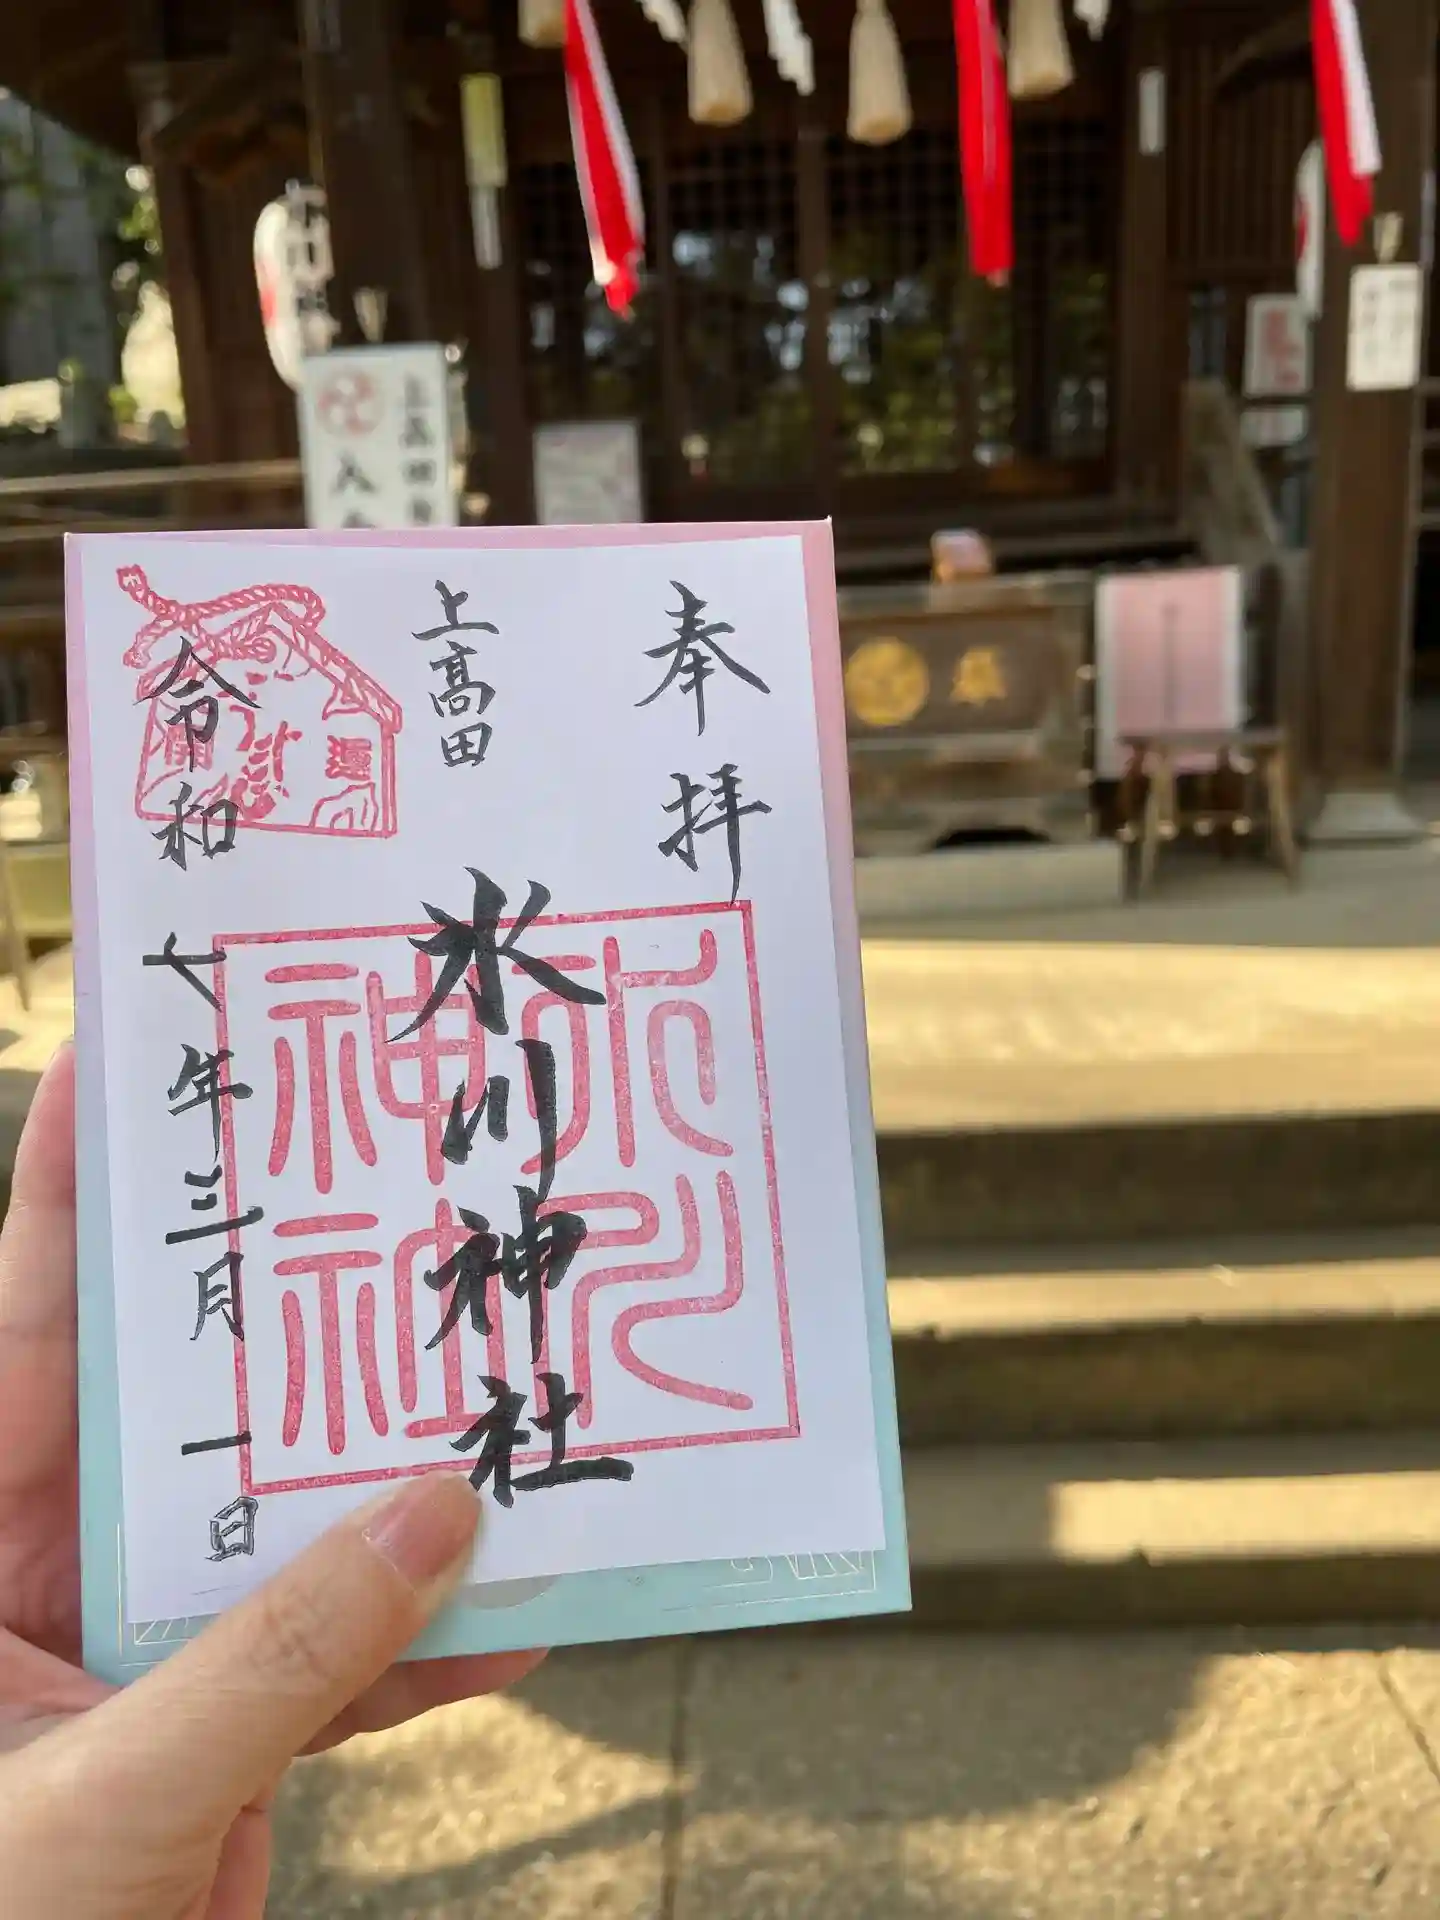 奉拝
上高田
氷川神社
令和七年三月一日
開運
氷川
神社